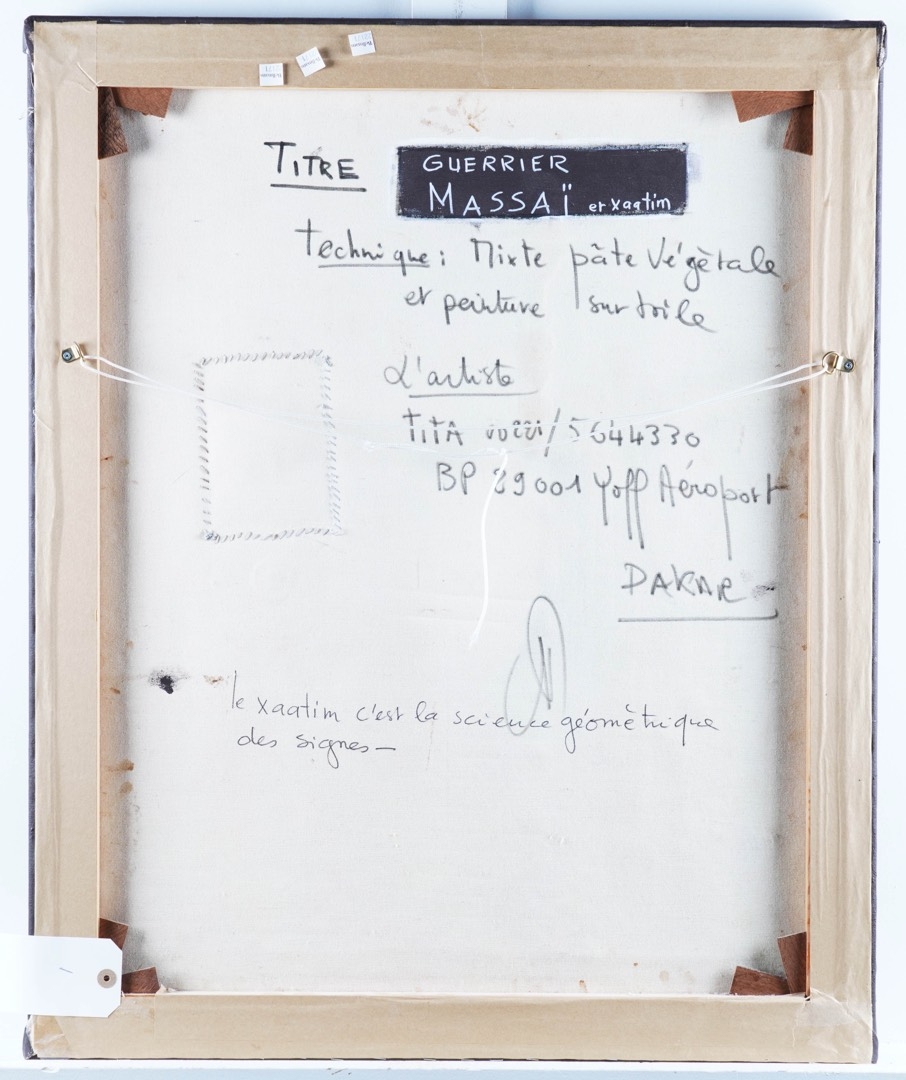 TITRE
GUERRIER
MASSAÏ et xaatim
Technique : Mixte pâte Végètale
et peinture sur toile
L'artiste
TITA /5644330
BP 29001 Yoff Aéroport
DAKAR -
le xaatim c'est la science géomètrique
des signes -